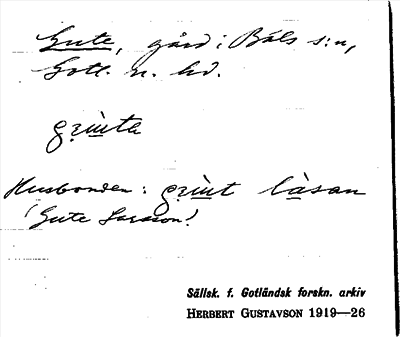 Gute, gård i Bäls s:n,
Gotl. n. hd.
Husbonden: làsan
'Gute Larsson'.
Sällsk. f. Gotländsk forskn. arkiv
HERBERT GUSTAVSON 1919—26